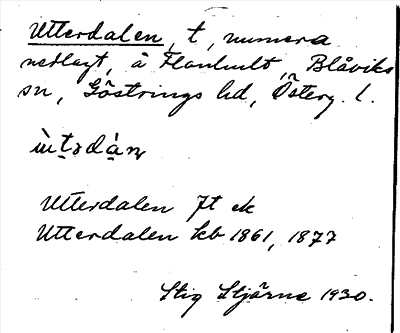 Utterdalen, t, numera
nedlagt, å Flanhult Blåviks
sn, Göstrings hd, Österg. l.
Utterdalen Jt ek
Utterdalen kb 1861, 1877
Stig Stjärne 1930.